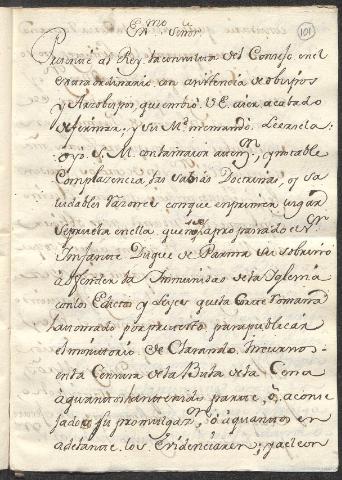 Ex.mo Señor
101
Presenté al Rey la consulta del Consejo en el
extraordinario con asistencia de obispos
y Arzobispos, que embió V.E. aier acabado
de firmar; y Su M.d me mandó Leersela:
oyo S. M. con la maior aten.on, y notable
Complazencia las sabias Doctrinas, y sa
ludables razones con que en primer lugar
se prueba en ella, que no se a propasado el S.r
Infante Duque de Parma su sobrino
à ofender la Inmunidad de la Iglesia
con los Edictos y Leyes que la Corte Romana
ha tomado por pretexto para publicar
el monitorio de Clarando Incursos
en la Censura de la Bula de la Cena
a quantos han tenido parte, ò acon se
jado su promulgaz.on, ò a quantos en
adelante los evidenciaren; y a el con